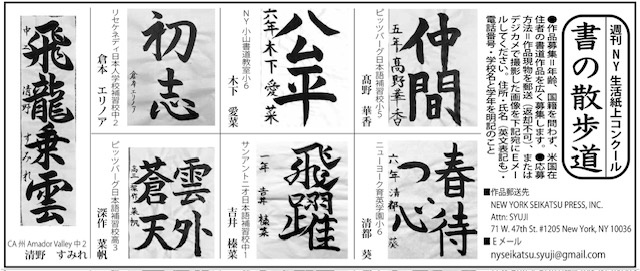 週刊NY生活紙上コンクール
書の散歩道
●作品募集＝年齢、国籍を問わず、米国在
住者の書道作品を広く募集します。●応募
方法＝作品現物を郵送（返却不可）、または
デジカメで撮影した画像を下記宛にEメー
ルしてください。住所・氏名（英文表記も）・
電話番号・学校名と学年を明記のこと
■作品郵送先
NEW YORK SEIKATSU PRESS, INC.
Attn: SYUJI
71 W. 47th St. #1205 New York, NY 10036
■Eメール
nyseikatsu.syuji@gmail.com
仲間
五年 髙野華香
ピッツバーグ日本語補習校小5
髙野 華香
公平
六年 木下愛菜
NY小山書道教室小6
木下 愛菜
初志
倉本エリノア
リセケネディ日本人学校補習校中2
倉本 エリノア
飛龍乗雲
中二 清野すみれ
CA州 Amador Valley 中2
清野 すみれ
春待つ心
六年 清都葵
ニューヨーク育英学園小6
清都 葵
飛躍
一年 吉井榛菜
サンアントニオ日本語補習校中1
吉井 榛菜
雲外
蒼天
高三 深作菜帆
ピッツバーグ日本語補習校高3
深作 菜帆